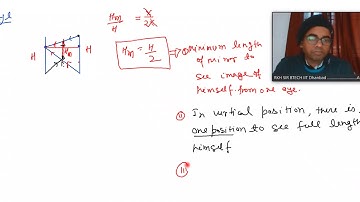 Hm/H = x/2x
Hm = H/2
① Minimum length
of mirror to
see image of
himself from one eye.
H
Hm
H
② In vertical position, there is
one position to see full length
himself
RKH SIR BTECH IIT Dhanbad